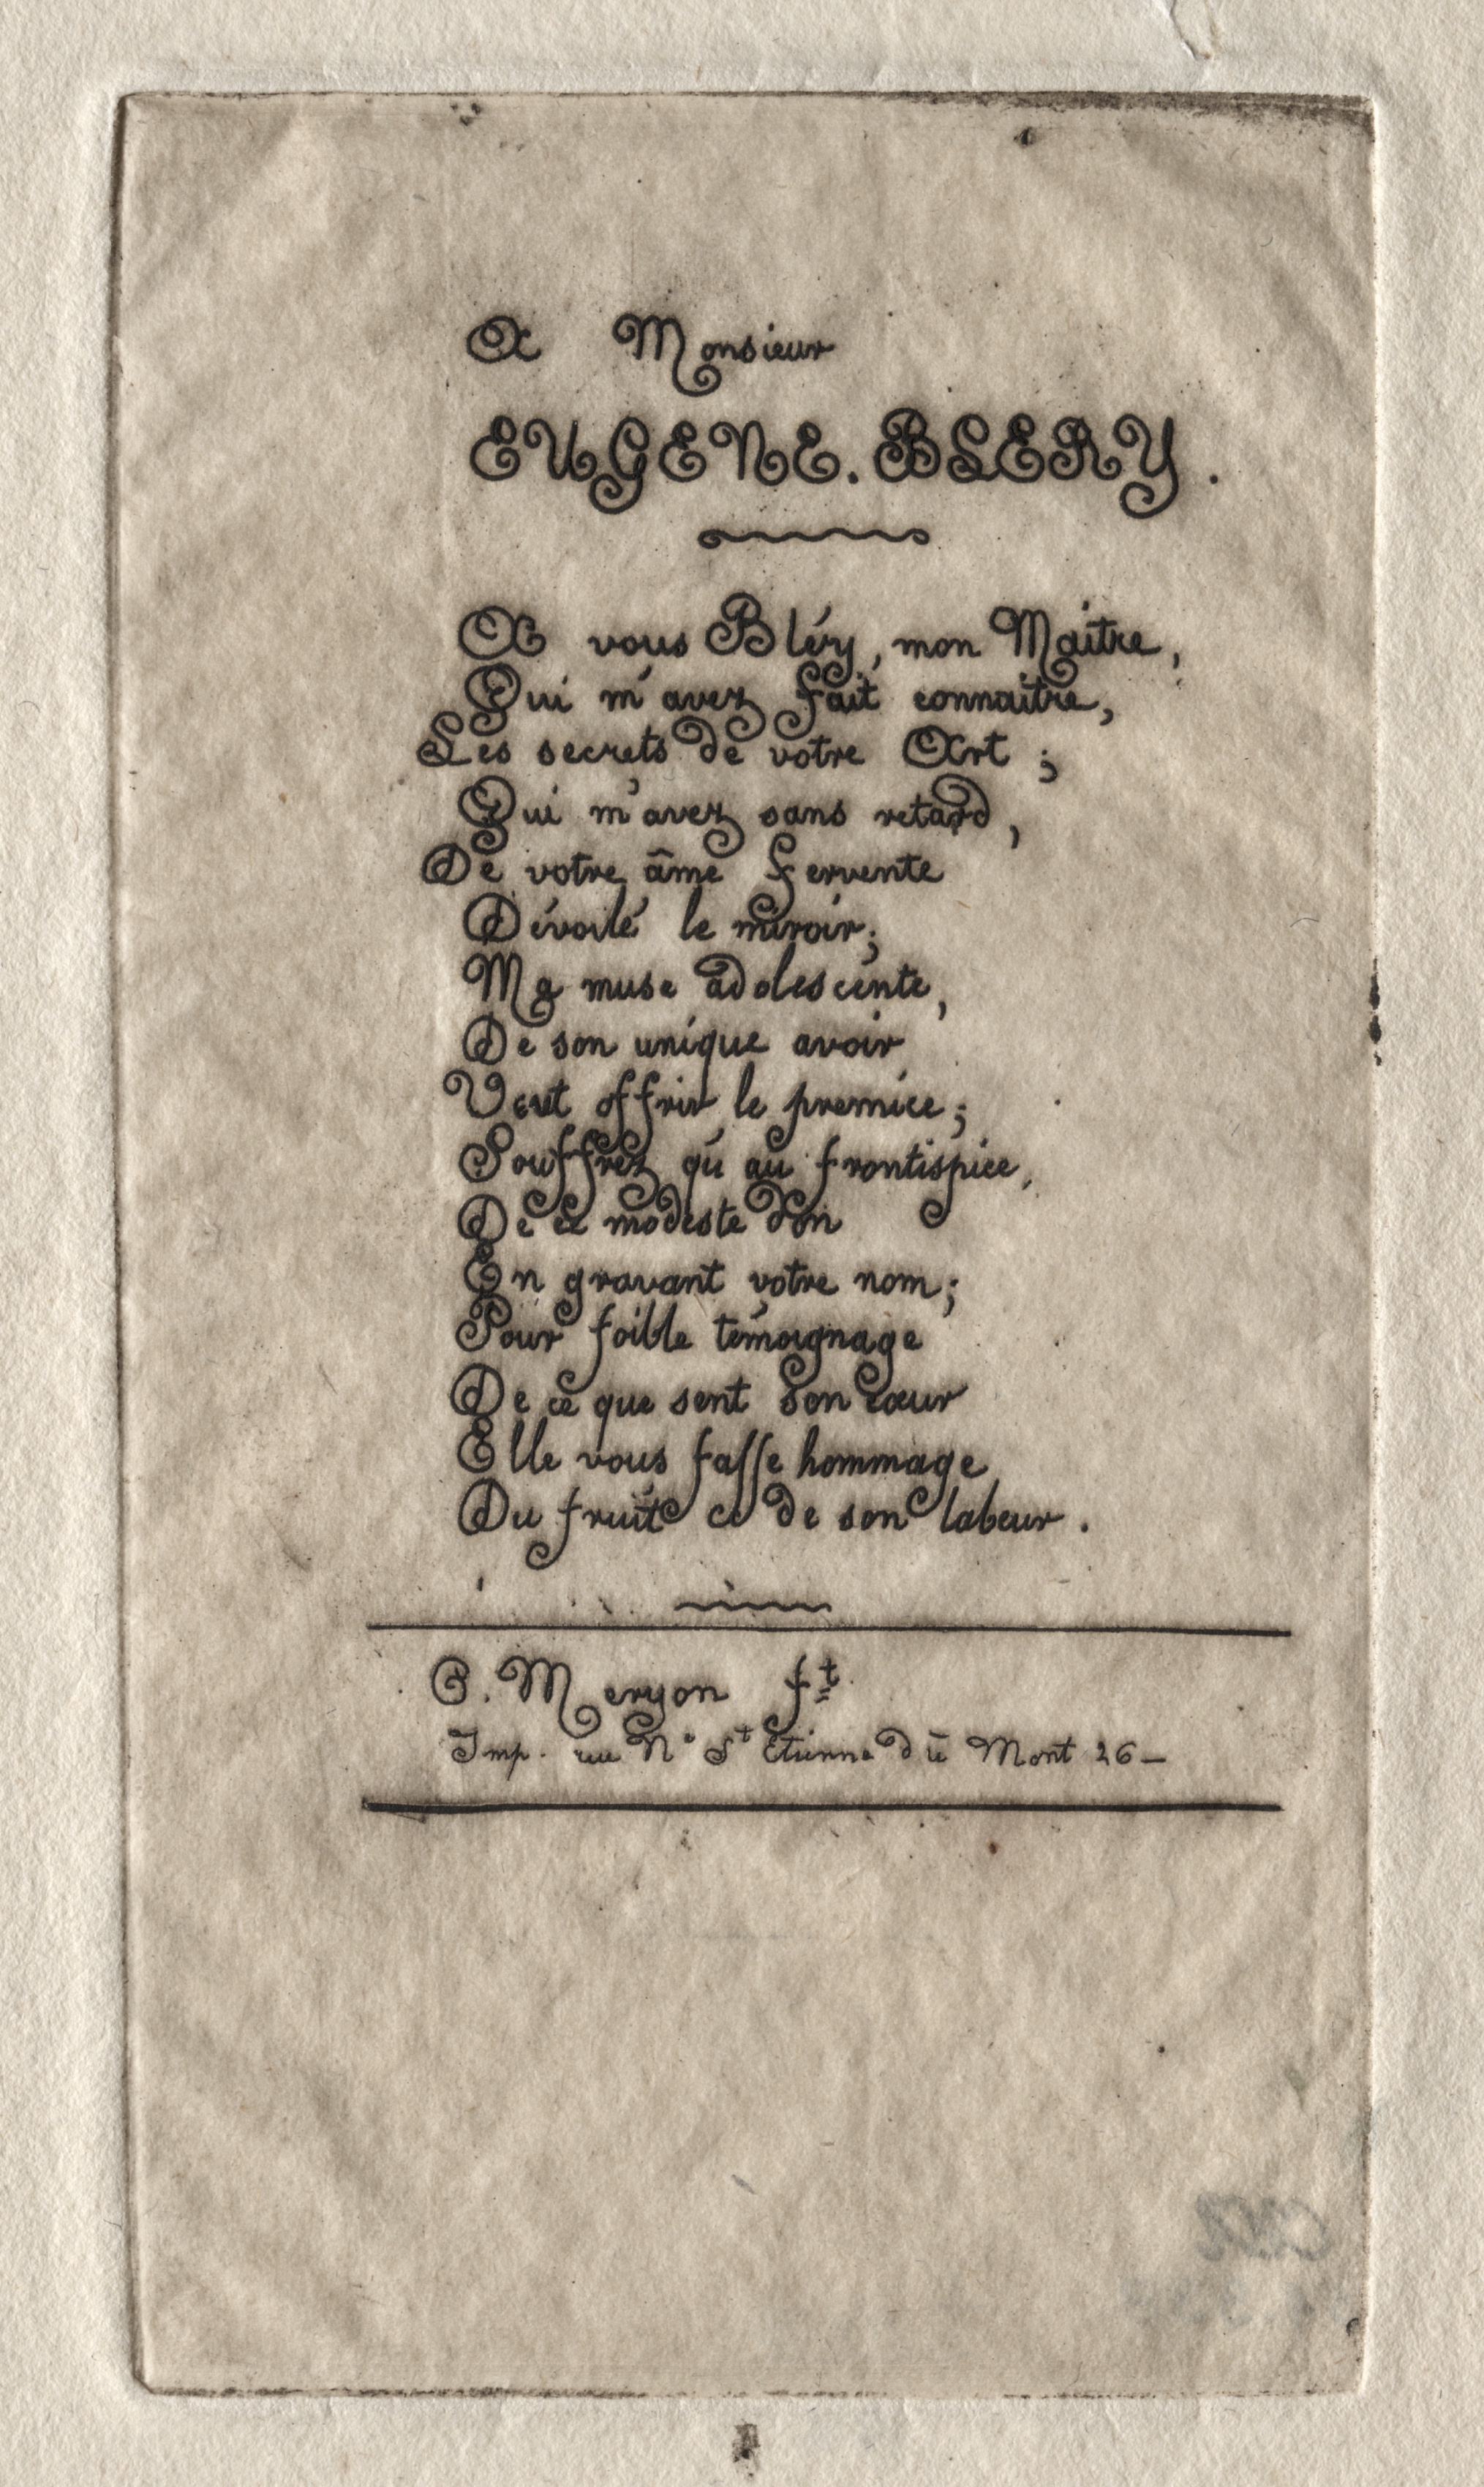 A Monsieur
EUGENE. BLERY.
A vous Bléry, mon Maitre,
Qui m'avez fait connaitre,
Les secrets de votre Art ;
Qui m'avez sans retard,
De votre âme fervente
Dévoilé le miroir;
Ma muse adolescente,
De son unique avoir
Veut offrir le premice;
Souffrez qu'au frontispice,
De ce modeste don
En gravant votre nom;
Pour foible témoignage
De ce que sent son cœur
Elle vous fasse hommage
Du fruit ci de son labeur.
C. Meryon ft
Imp. rue Nº St Etienne du Mont 26 –